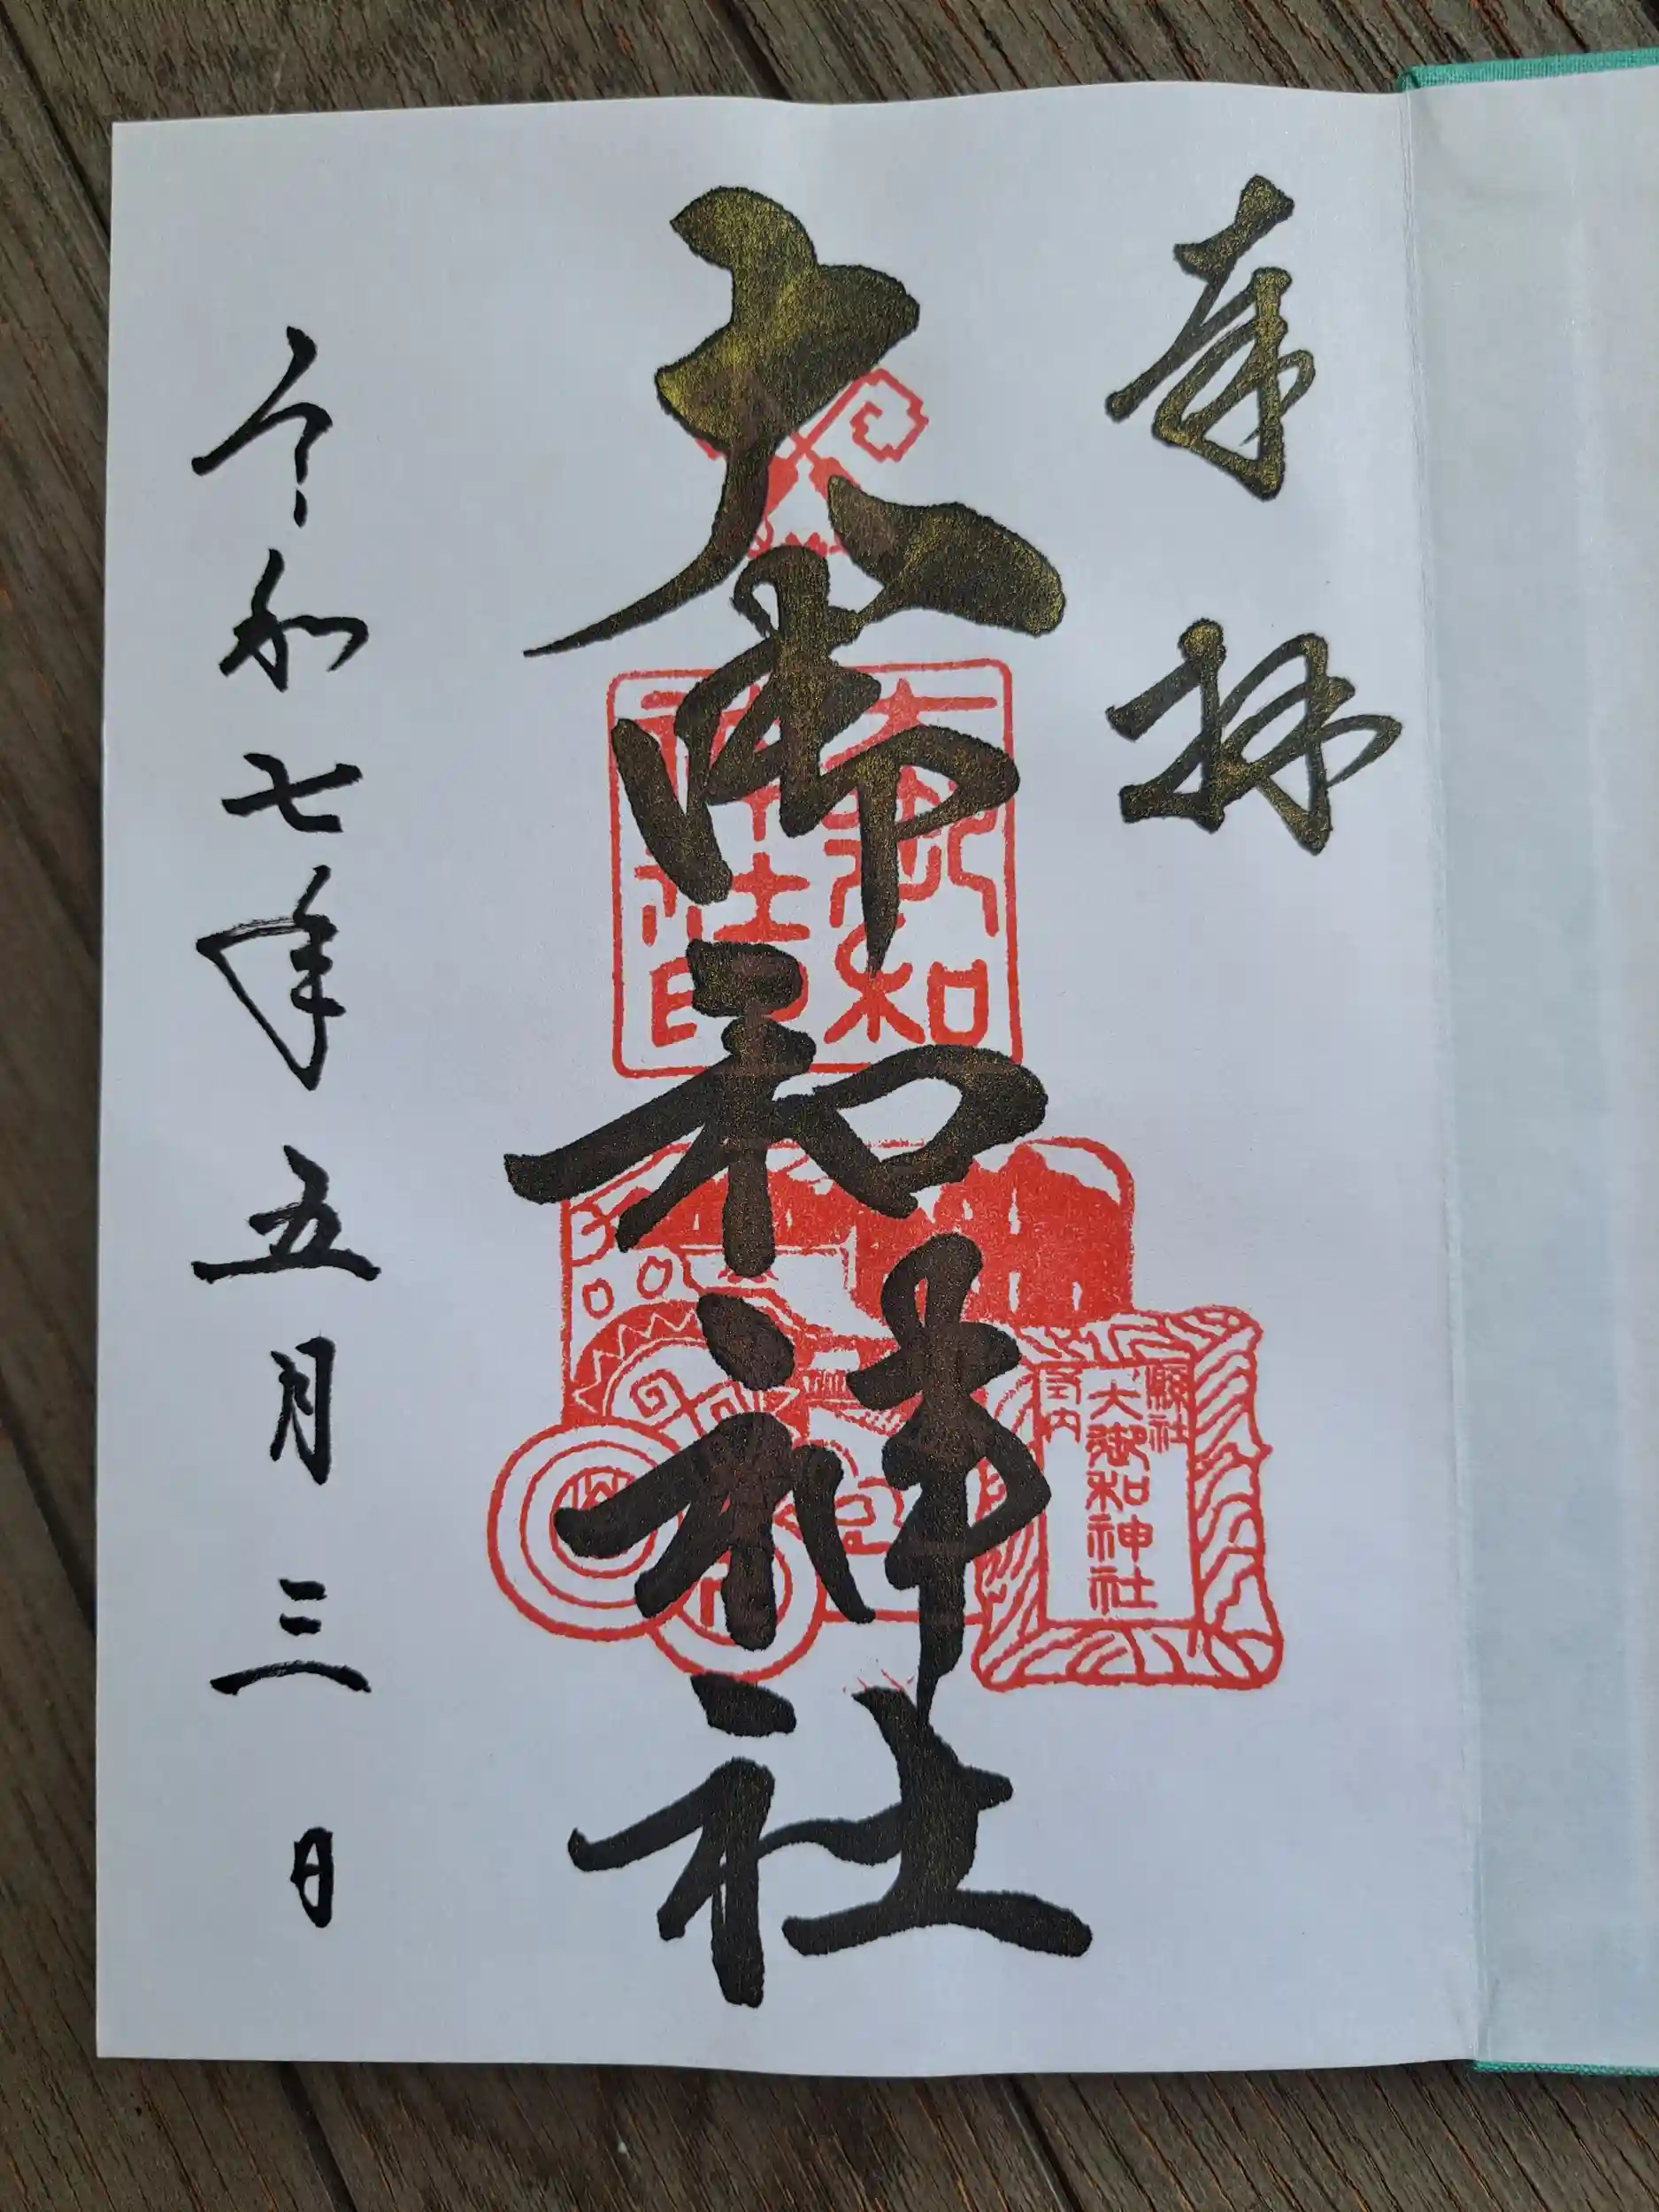 奉拝
大御和神社
令和七年五月三日
大御和
神社印
縣社
大御和神社